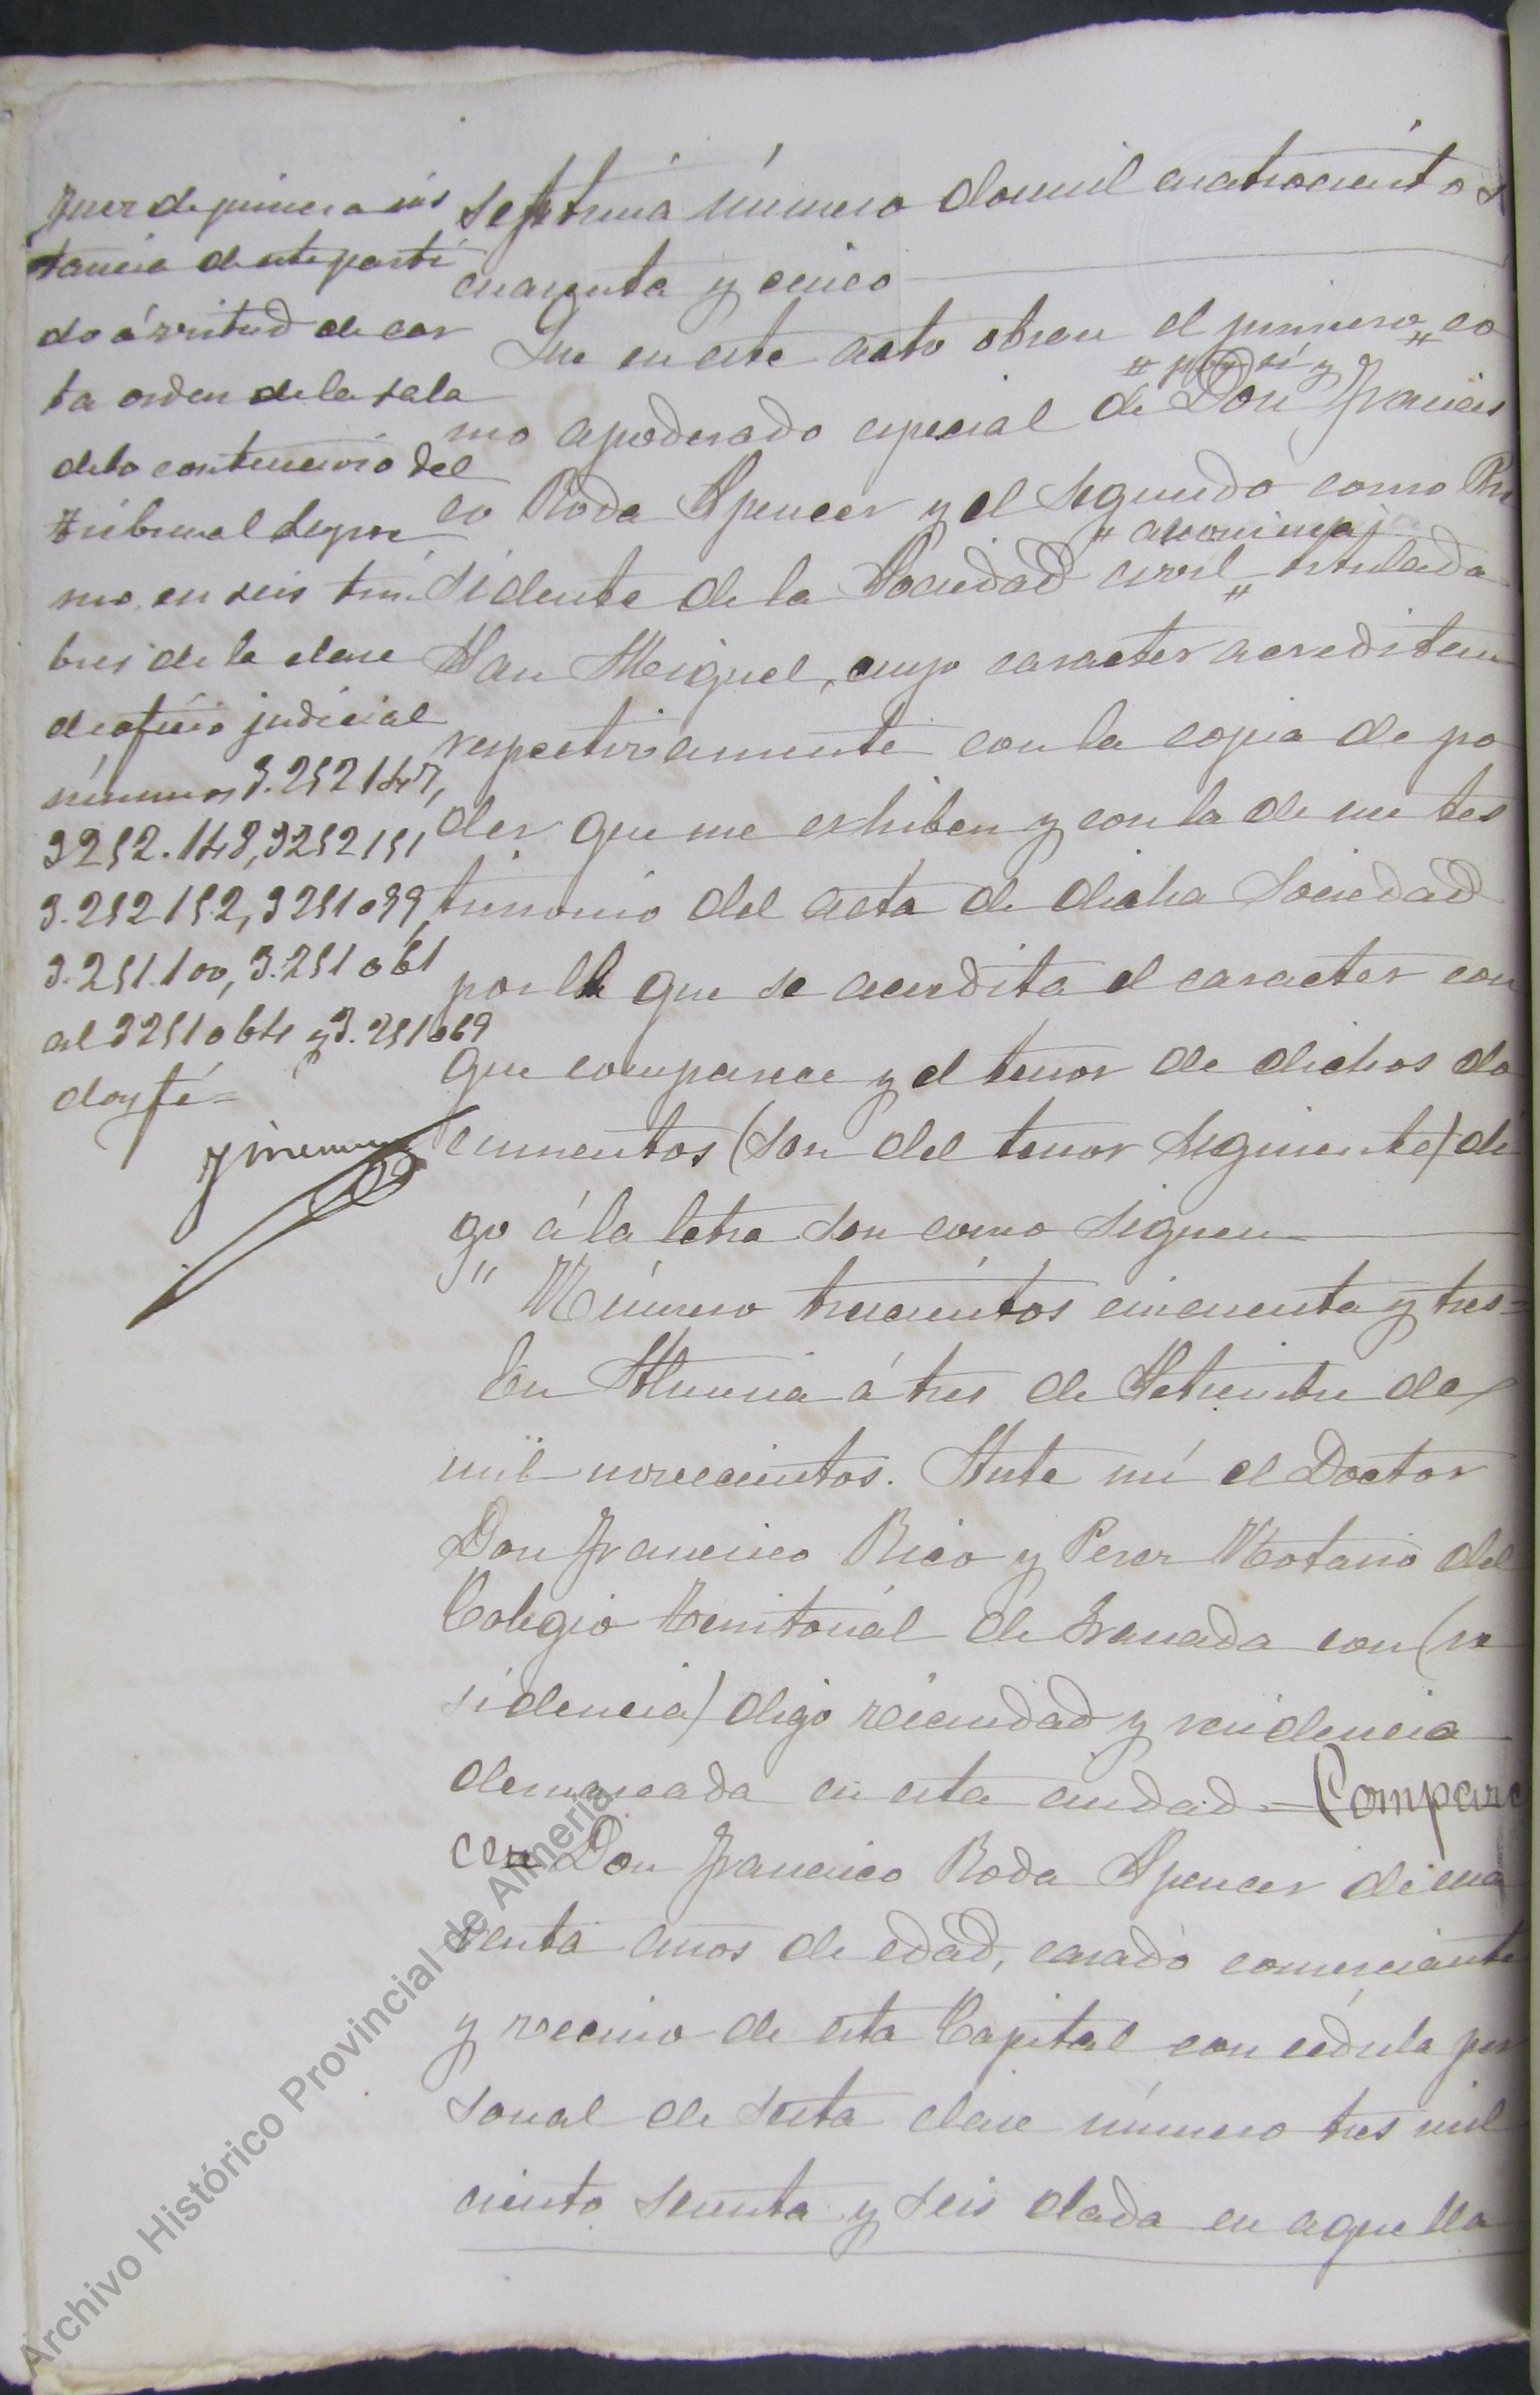 Juez de primera ins
tancia de este parti
do á virtud de car
ta orden de la sala
de lo contencioso del
tribunal Supre
mo, en seis tim
bres de la clase
de oficio judicial
números 3.252147,
3252.148, 3252151
3.252152, 3251099,
3.251.100, 3.251061
al 3251064 y 3.251069
doy fé=
Jimenez
septima número dos mil cuatrocientos
cuarenta y cinco
Que en este acto obran el primero " co
" por sí y
mo apoderado especial de Don Francis
co Roda Spencer y el segundo como Pre
" anonima
sidente de la Sociedad civil " titulada
San Miguel, cuyo caracter acreditan
respectivamente con la copia de po
der que me exhiben y con la de un tes
timonio del acta de dicha Sociedad
por la que se acredita el caracter con
que comparece y el tenor de dichos do
cumentos (son del tenor siguiente) di
go á la letra son como siguen=
" Número trescientos cincuenta y tres=
En Almeria á tres de Setiembre de
mil novecientos. Ante mí el Doctor
Don Francisco Rico y Perez Notario del
Colegio territorial de Granada con (re
sidencia) digo vecindad y residencia
demarcada en esta ciudad= Compare
cen Don Francisco Roda Spencer de cua
renta años de edad, casado comerciante
y vecino de esta Capital con cédula per
sonal de sesta clase número tres mil
ciento setenta y seis dada en aquella
Archivo Histórico Provincial de Almería